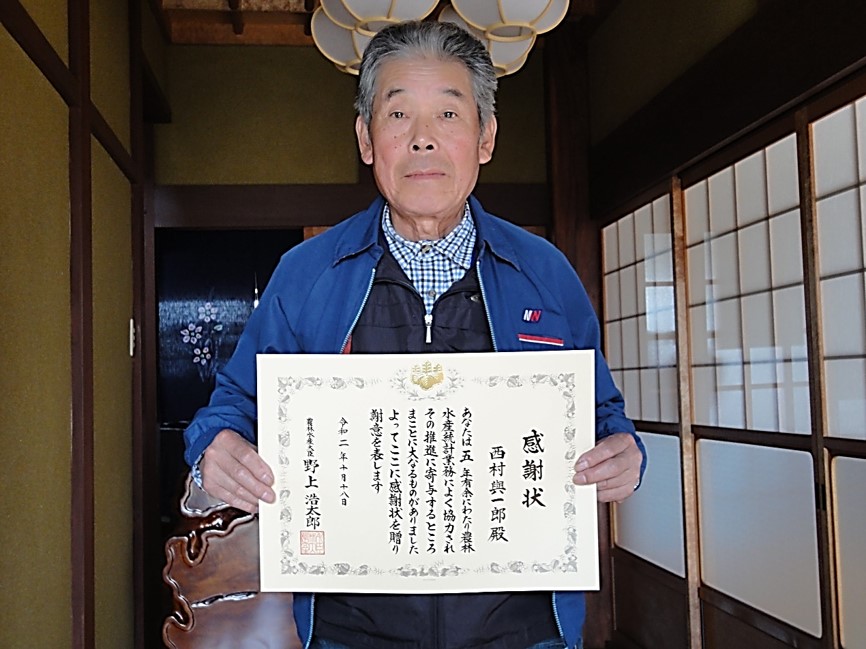 感謝状
西村與一郎殿
あなたは五年有余にわたり農林
水産統計業務によく協力され
その推進に寄与するところ
まことに大なるものがありました
よってここに感謝状を贈り
謝意を表します
令和二年十月十八日
農林水産大臣 野上浩太郎